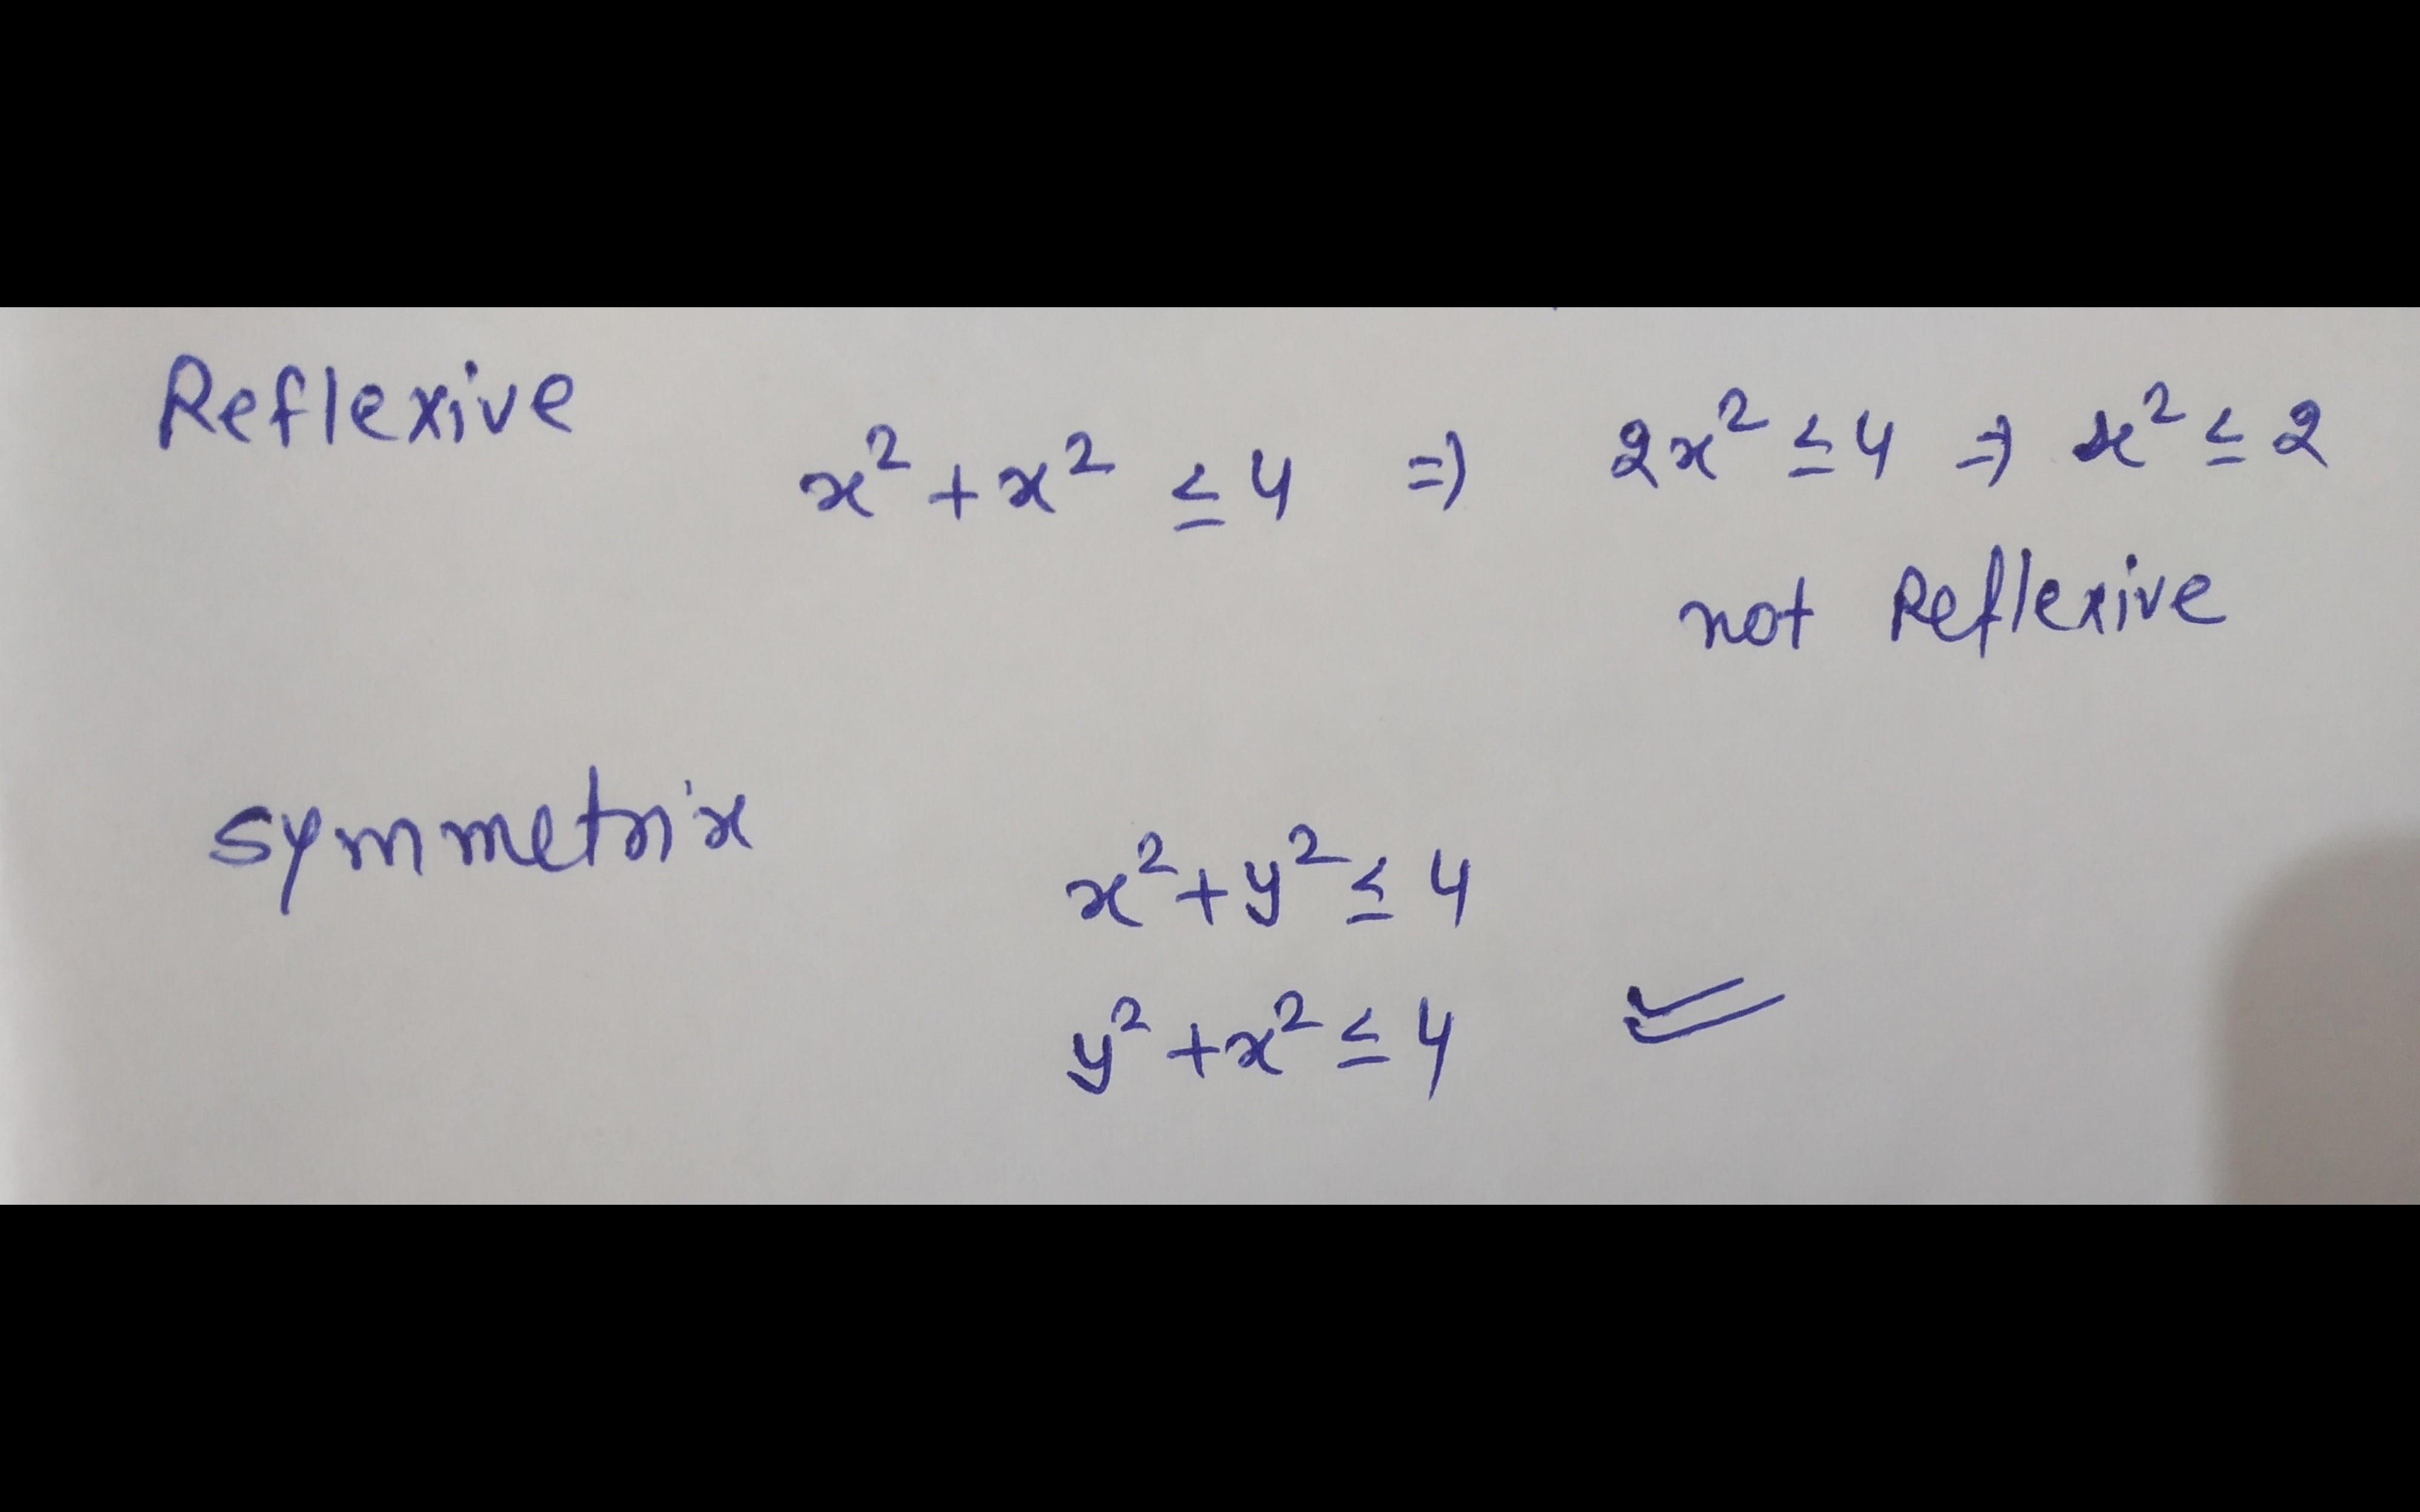 Reflexive
x² + x² ≤ 4 ⇒ 2x² ≤ 4 ⇒ x² ≤ 2
not Reflexive
symmetrix
x² + y² ≤ 4
y² + x² ≤ 4